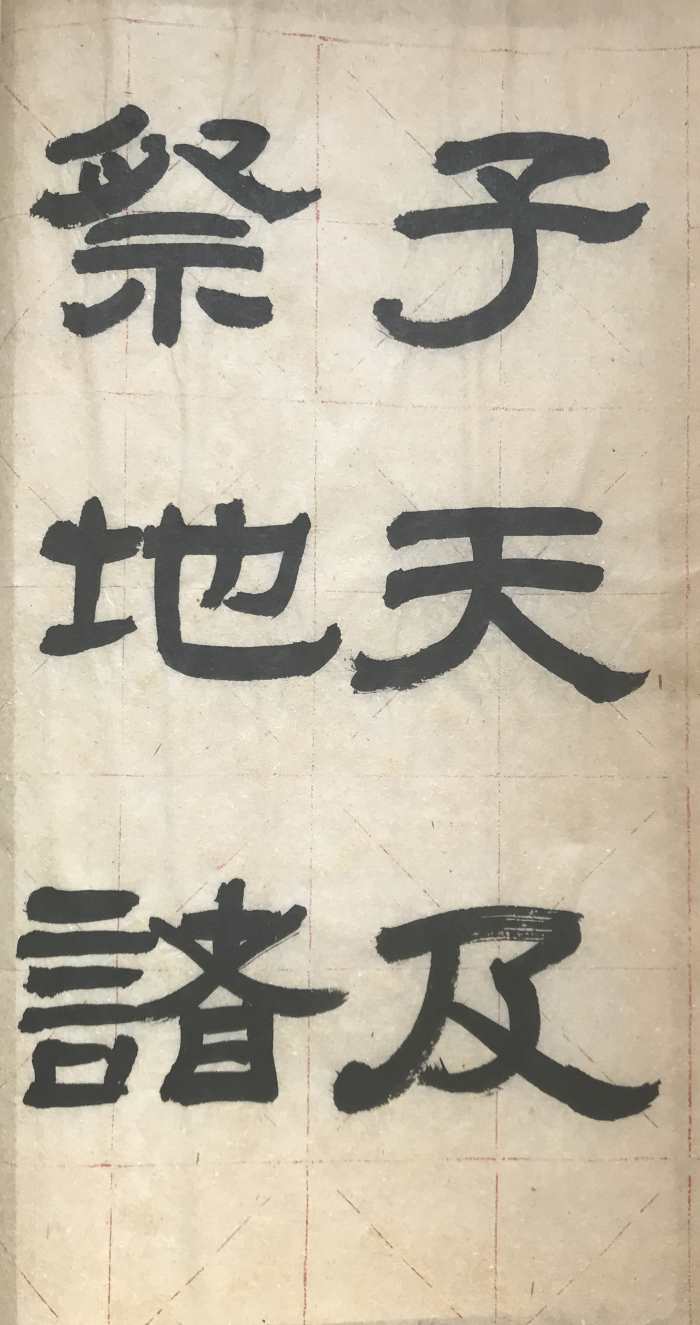 子天及
祭地諸